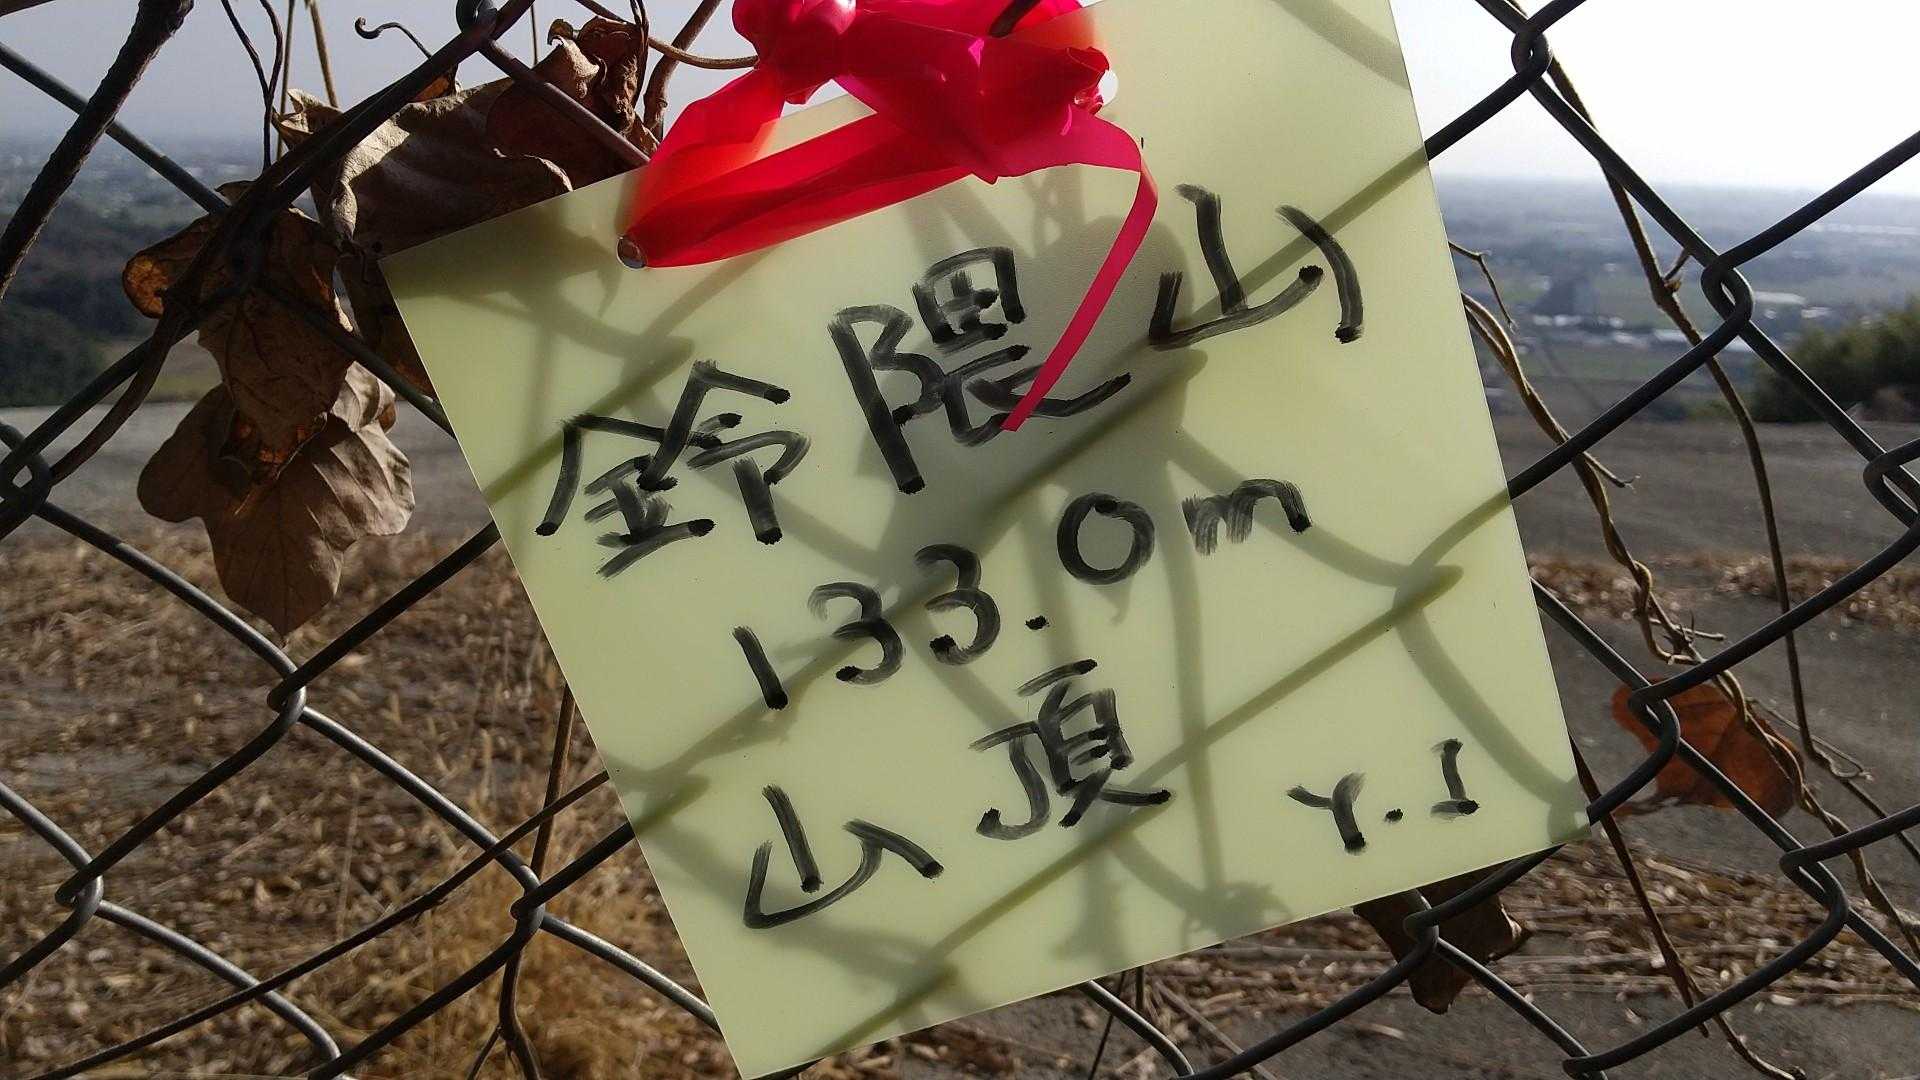 鈴隈山
133.0m
山頂
Y.I